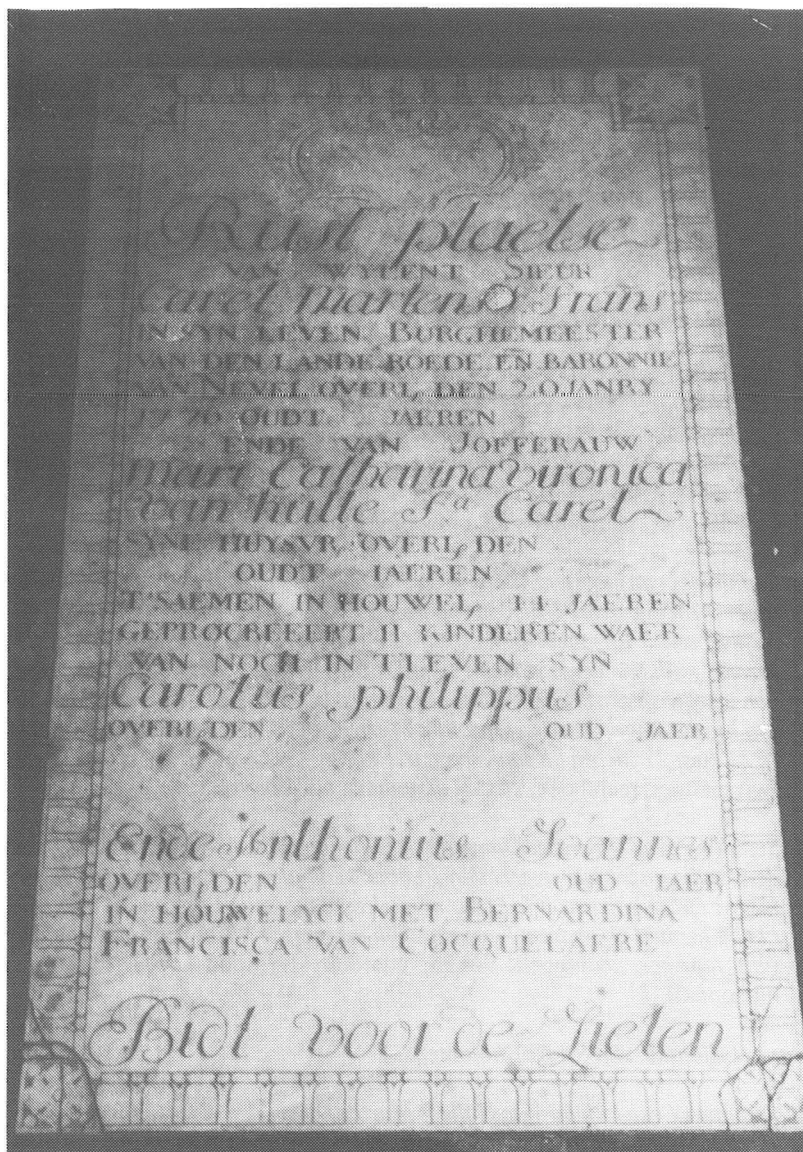 Rust plaetse
VAN WYLENT SIEUR
Carel Martens Fs Frans
IN SYN LEVEN BURGHEMEESTER
VAN DEN LANDE ROEDE EN BARONNIE
VAN NEVEL OVERL, DEN 20 JANRY
OUDT JAEREN
ENDE VAN JOFFERAUW
Mari Catharina vironica
van hulle Fa Carel
SYNE HUYSVR OVERL, DEN
OUDT IAEREN
T'SAEMEN IN HOUWEL, 14 JAEREN
GEPROCREEERT II KINDEREN WAER
VAN NOCH IN T LEVEN SYN
Carolus philippus
OVERL, DEN OUD JAER
Ende Anthonius Joannes
OVERL, DEN OUD IAER
IN HOUWELYCK MET BERNARDINA
FRANCISCA VAN COCQUELAERE
Bidt voor de Zielen